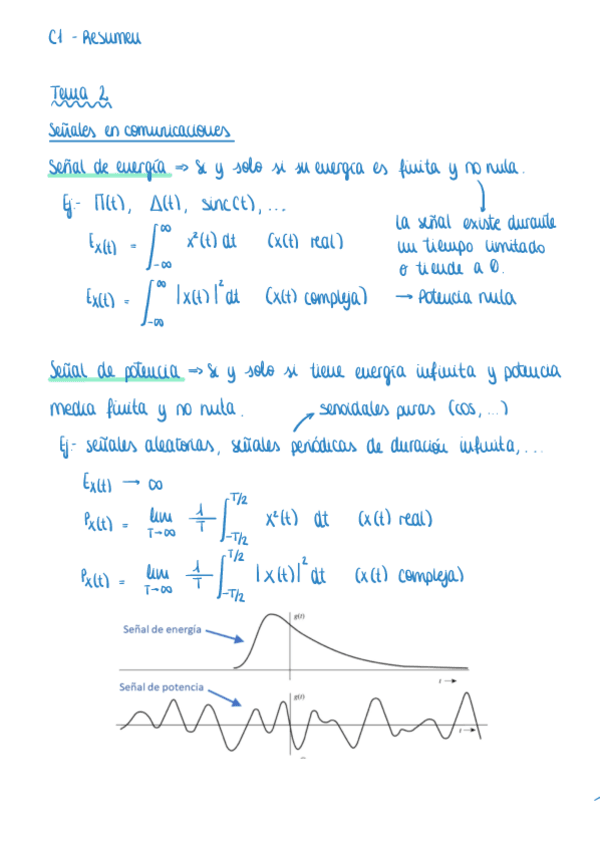 C1 - Resumen
Tema 2
Señales en comunicaciones
Señal de energía ⇒ Si y solo si su energía es finita y no nula.
Ej.- Π(t), Δ(t), sinc(t), ...
La señal existe durante
un tiempo limitado
o tiende a 0.
→ Potencia nula
Ex(t) = ∫_{-∞}^{∞} x²(t) dt (x(t) real)
Ex(t) = ∫_{-∞}^{∞} |x(t)|² dt (x(t) compleja)
Señal de potencia ⇒ Si y solo si tiene energía infinita y potencia
media finita y no nula.
senoidales puras (cos, ...)
Ej.- señales aleatorias, señales periódicas de duración infinita, ...
Ex(t) → ∞
Px(t) = lim_{T→∞} 1/T ∫_{-T/2}^{T/2} x²(t) dt (x(t) real)
Px(t) = lim_{T→∞} 1/T ∫_{-T/2}^{T/2} |x(t)|² dt (x(t) compleja)
Señal de energía
g(t)
t →
Señal de potencia
g(t)
t →